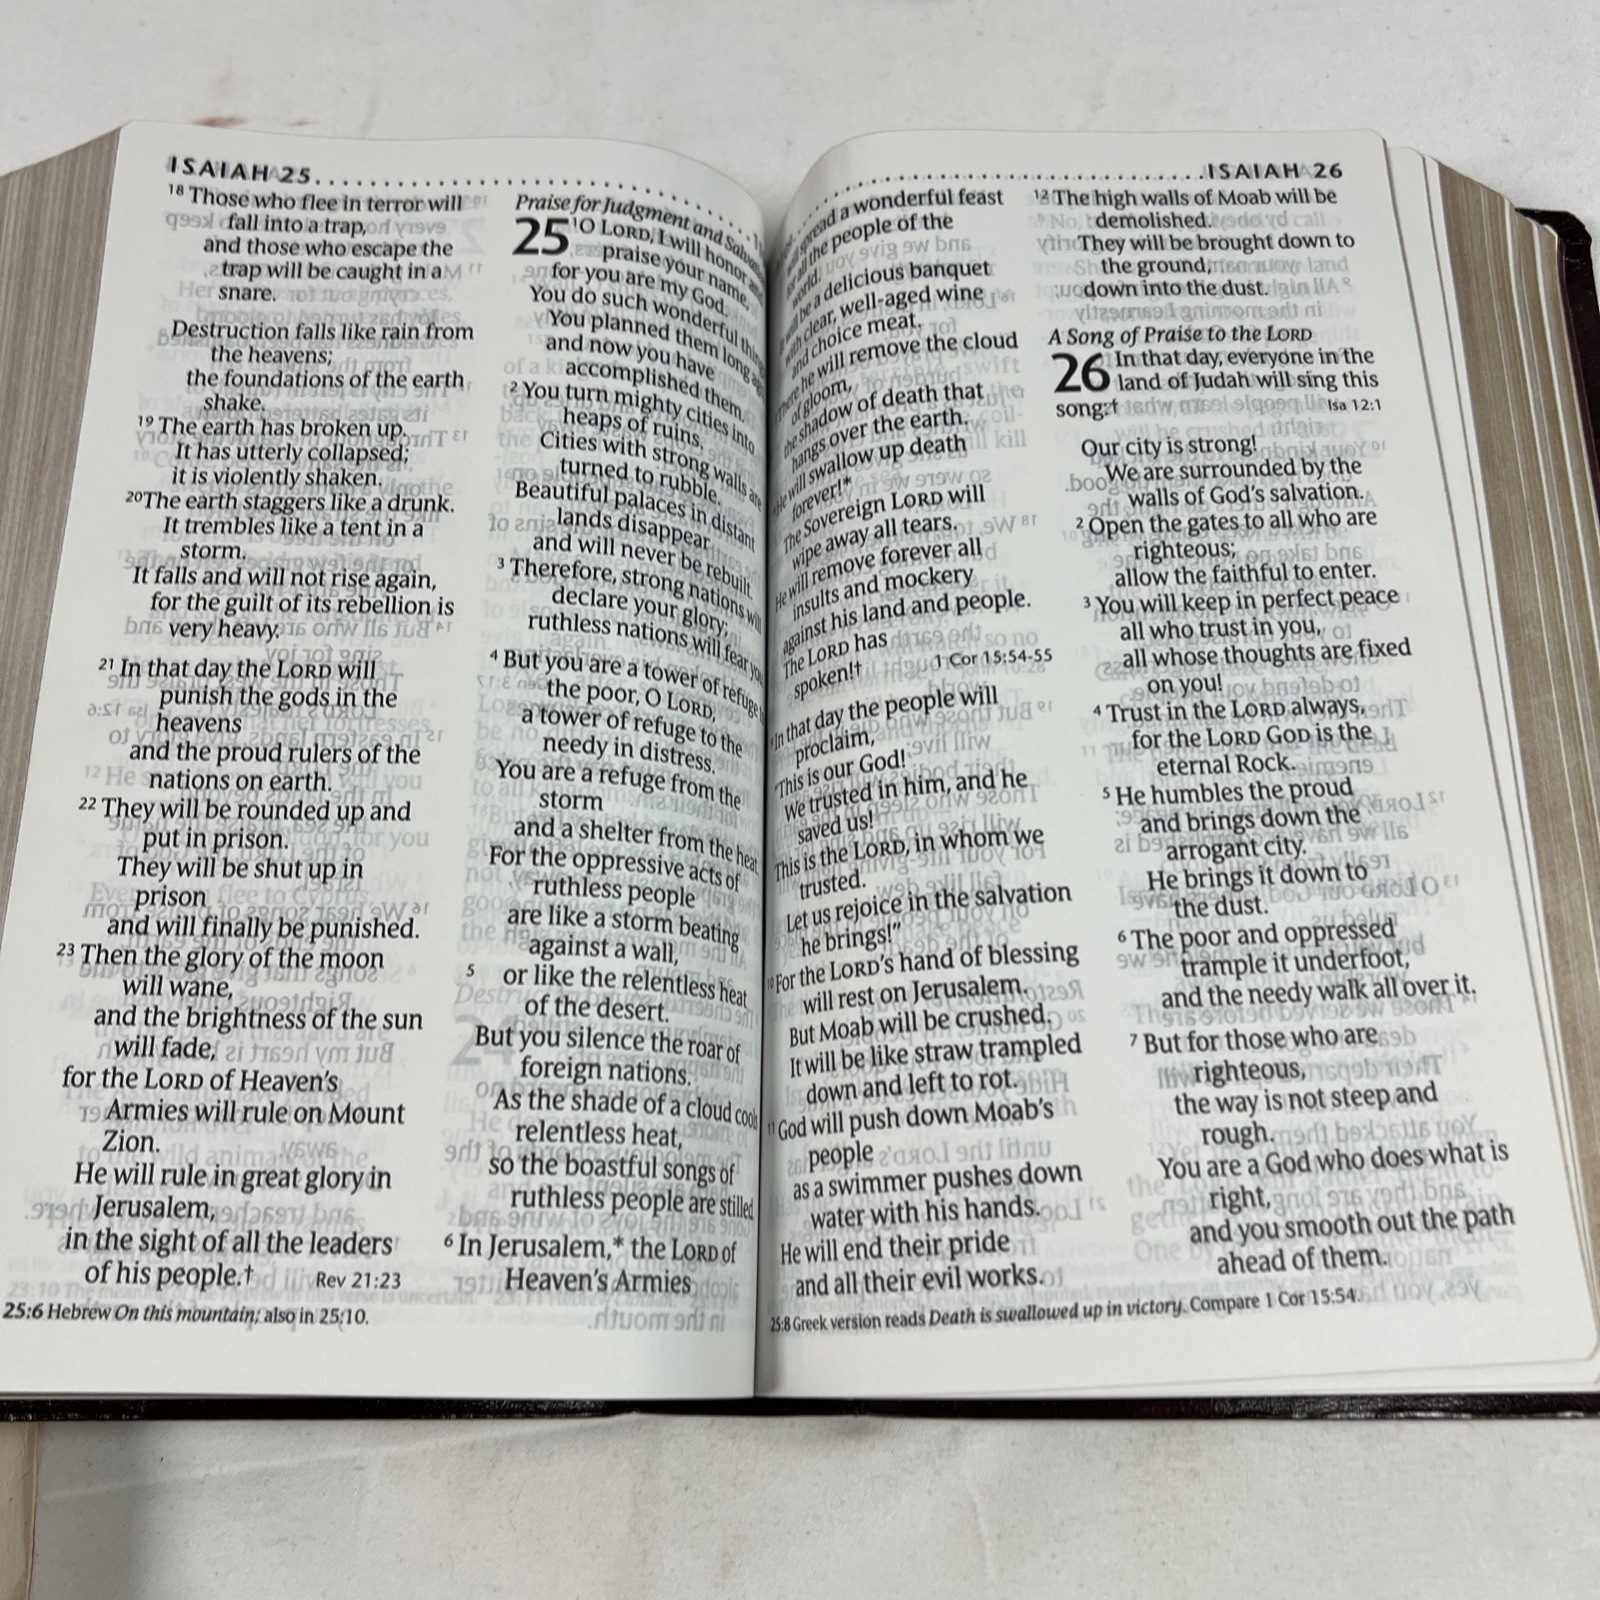 ISAIAH 25
18 Those who flee in terror will
fall into a trap,
and those who escape the
trap will be caught in a
snare.
Destruction falls like rain from
the heavens;
the foundations of the earth
shake.
19 The earth has broken up.
It has utterly collapsed;
it is violently shaken.
20 The earth staggers like a drunk.
It trembles like a tent in a
storm.
It falls and will not rise again,
for the guilt of its rebellion is
very heavy.
21 In that day the LORD will
punish the gods in the
heavens
and the proud rulers of the
nations on earth.
22 They will be rounded up and
put in prison.
They will be shut up in
prison
and will finally be punished.
23 Then the glory of the moon
will wane,
and the brightness of the sun
will fade,
for the LORD of Heaven's
Armies will rule on Mount
Zion.
He will rule in great glory in
Jerusalem,
in the sight of all the leaders
of his people.† Rev 21:23
Praise for Judgment and
25 1 O LORD, I will honor and
praise your name,
for you are my God.
You do such wonderful
You planned them long
and now you have
accomplished them.
2 You turn mighty cities into
heaps of ruins.
Cities with strong walls are
turned to rubble.
Beautiful palaces in distant
lands disappear
and will never be rebuilt.
3 Therefore, strong nations will
declare your glory;
ruthless nations will fear
4 But you are a tower of refuge
the poor, O LORD,
a tower of refuge to the
needy in distress.
You are a refuge from the
storm
and a shelter from the heat
For the oppressive acts of
ruthless people
are like a storm beating
against a wall,
5 or like the relentless heat
of the desert.
But you silence the roar of
foreign nations.
As the shade of a cloud cools
relentless heat,
so the boastful songs of
ruthless people are stilled
6 In Jerusalem,* the LORD of
Heaven's Armies
25:6 Hebrew On this mountain; also in 25:10.
ISAIAH 26
spread a wonderful feast
all the people of the
world.
be a delicious banquet
clear, well-aged wine
and choice meat.
he will remove the cloud
of gloom,
the shadow of death that
hangs over the earth.
He will swallow up death
forever!*
The Sovereign LORD will
wipe away all tears.
He will remove forever all
insults and mockery
against his land and people.
The LORD has
spoken!† 1 Cor 15:54-55
In that day the people will
proclaim,
"This is our God!
We trusted in him, and he
saved us!
This is the LORD, in whom we
trusted.
Let us rejoice in the salvation
he brings!"
10 For the LORD's hand of blessing
will rest on Jerusalem.
But Moab will be crushed.
It will be like straw trampled
down and left to rot.
11 God will push down Moab's
people
as a swimmer pushes down
water with his hands.
He will end their pride
and all their evil works.
12 The high walls of Moab will be
demolished.
They will be brought down to
the ground,
down into the dust.
A Song of Praise to the LORD
26 In that day, everyone in the
land of Judah will sing this
song:† Isa 12:1
Our city is strong!
We are surrounded by the
walls of God's salvation.
2 Open the gates to all who are
righteous;
allow the faithful to enter.
3 You will keep in perfect peace
all who trust in you,
all whose thoughts are fixed
on you!
4 Trust in the LORD always,
for the LORD GOD is the
eternal Rock.
5 He humbles the proud
and brings down the
arrogant city.
He brings it down to
the dust.
6 The poor and oppressed
trample it underfoot,
and the needy walk all over it.
7 But for those who are
righteous,
the way is not steep and
rough.
You are a God who does what is
right,
and you smooth out the path
ahead of them.
25:8 Greek version reads Death is swallowed up in victory. Compare 1 Cor 15:54.